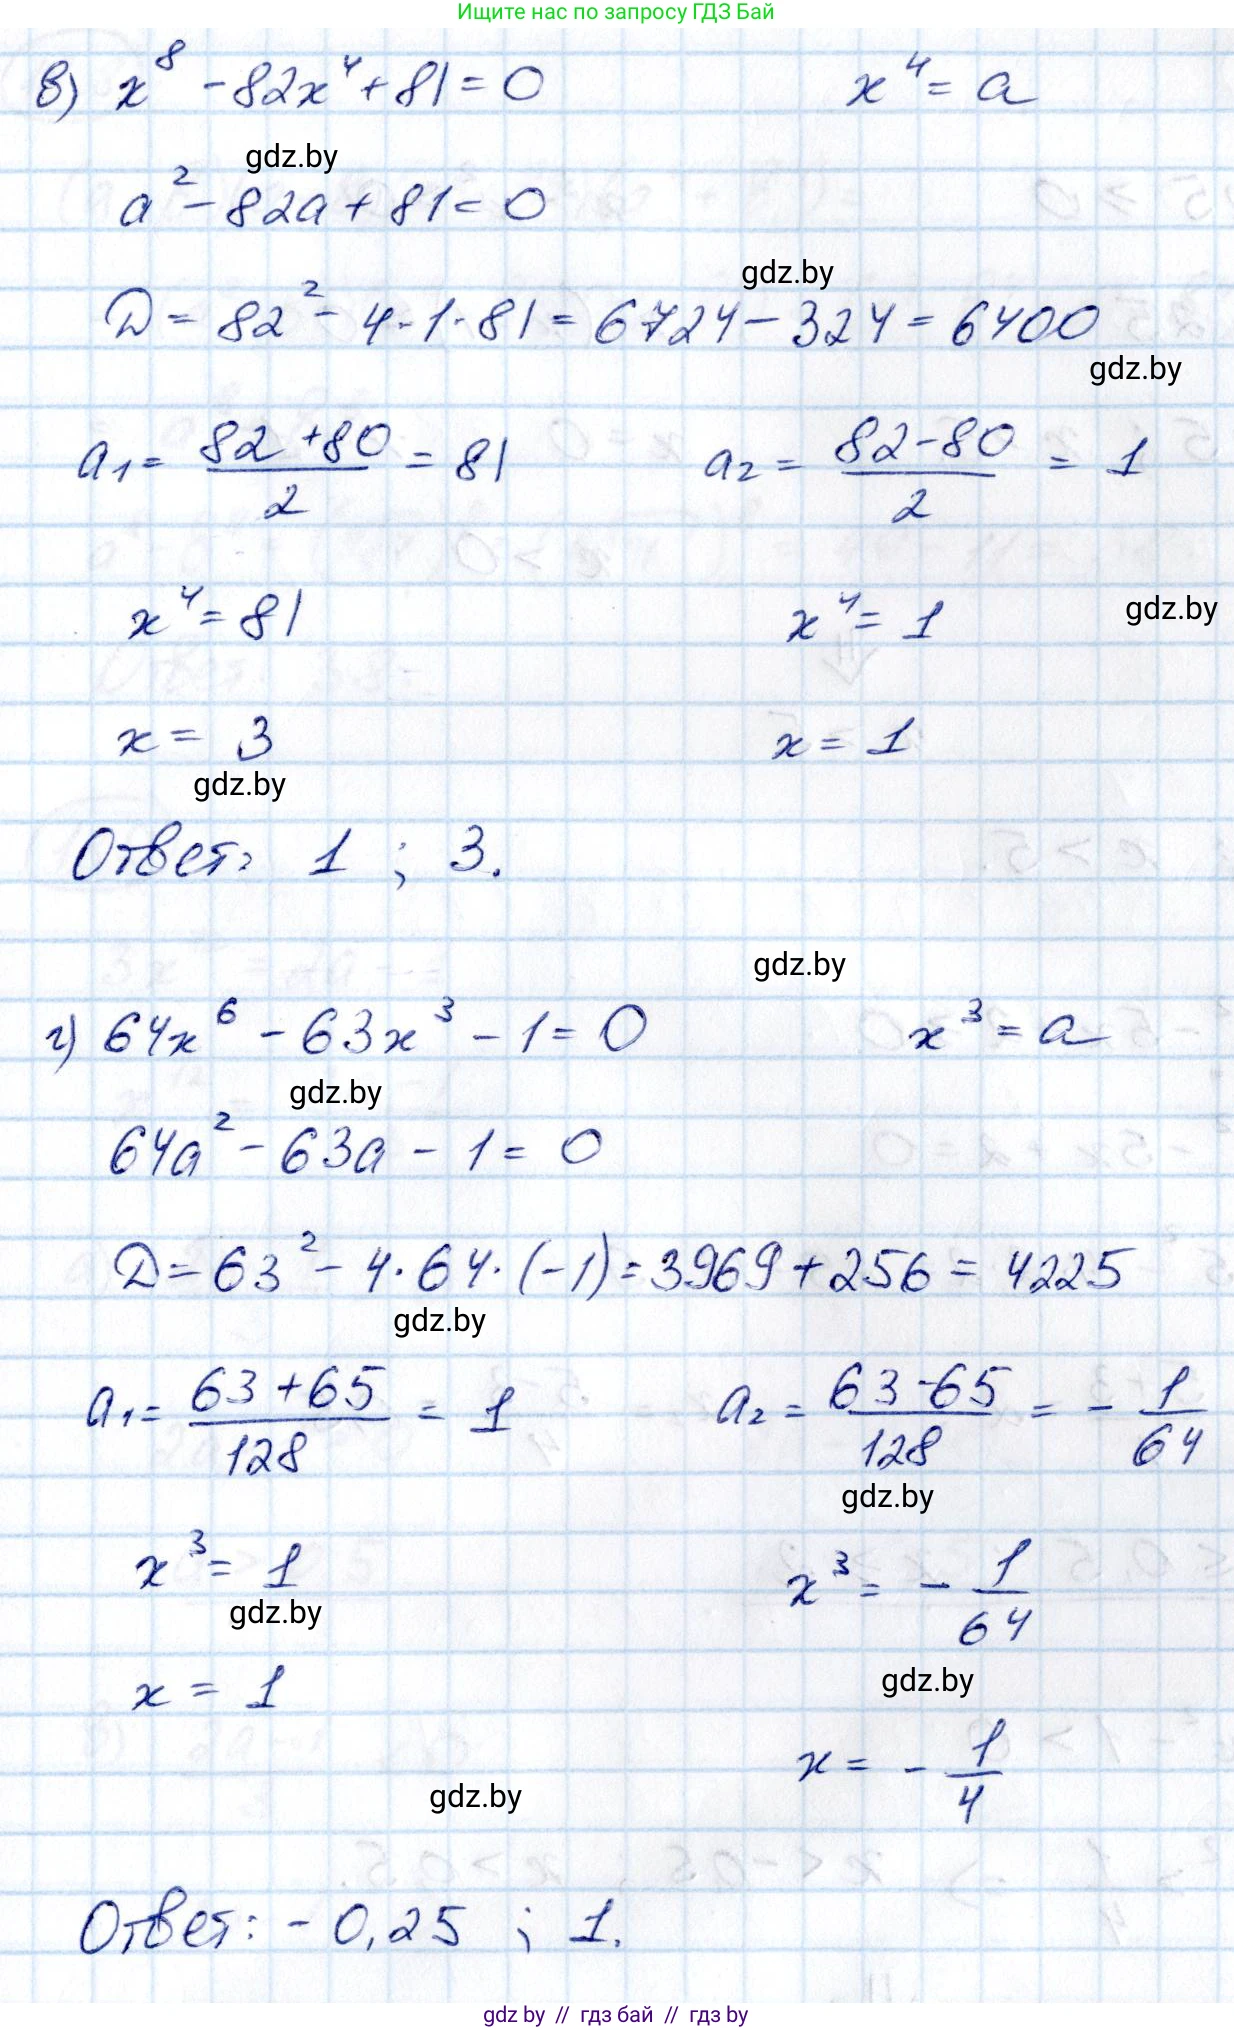 Ищите нас по запросу ГДЗ Бай
в) x⁸ - 82x⁴ + 81 = 0 x⁴ = a
gdz.by
a² - 82a + 81 = 0
gdz.by
D = 82² - 4·1·81 = 6724 - 324 = 6400
gdz.by
a₁ = (82 + 80)/2 = 81 a₂ = (82 - 80)/2 = 1
x⁴ = 81 x⁴ = 1 gdz.by
x = 3 x = 1
gdz.by
Ответ: 1 ; 3.
gdz.by
г) 64x⁶ - 63x³ - 1 = 0 x³ = a
gdz.by
64a² - 63a - 1 = 0
D = 63² - 4·64·(-1) = 3969 + 256 = 4225
gdz.by
a₁ = (63 + 65)/128 = 1 a₂ = (63 - 65)/128 = - 1/64
gdz.by
x³ = 1 x³ = - 1/64
gdz.by
gdz.by
x = 1 x = - 1/4
gdz.by
Ответ: - 0,25 ; 1.
gdz by // гдз бай // гдз by